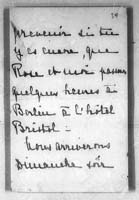 29
prevenir si tu
y es encore, que
Rose et moi passons
quelques heures à
Berlin à l'hôtel
Bristol –
Nous arriverons
Dimanche soir